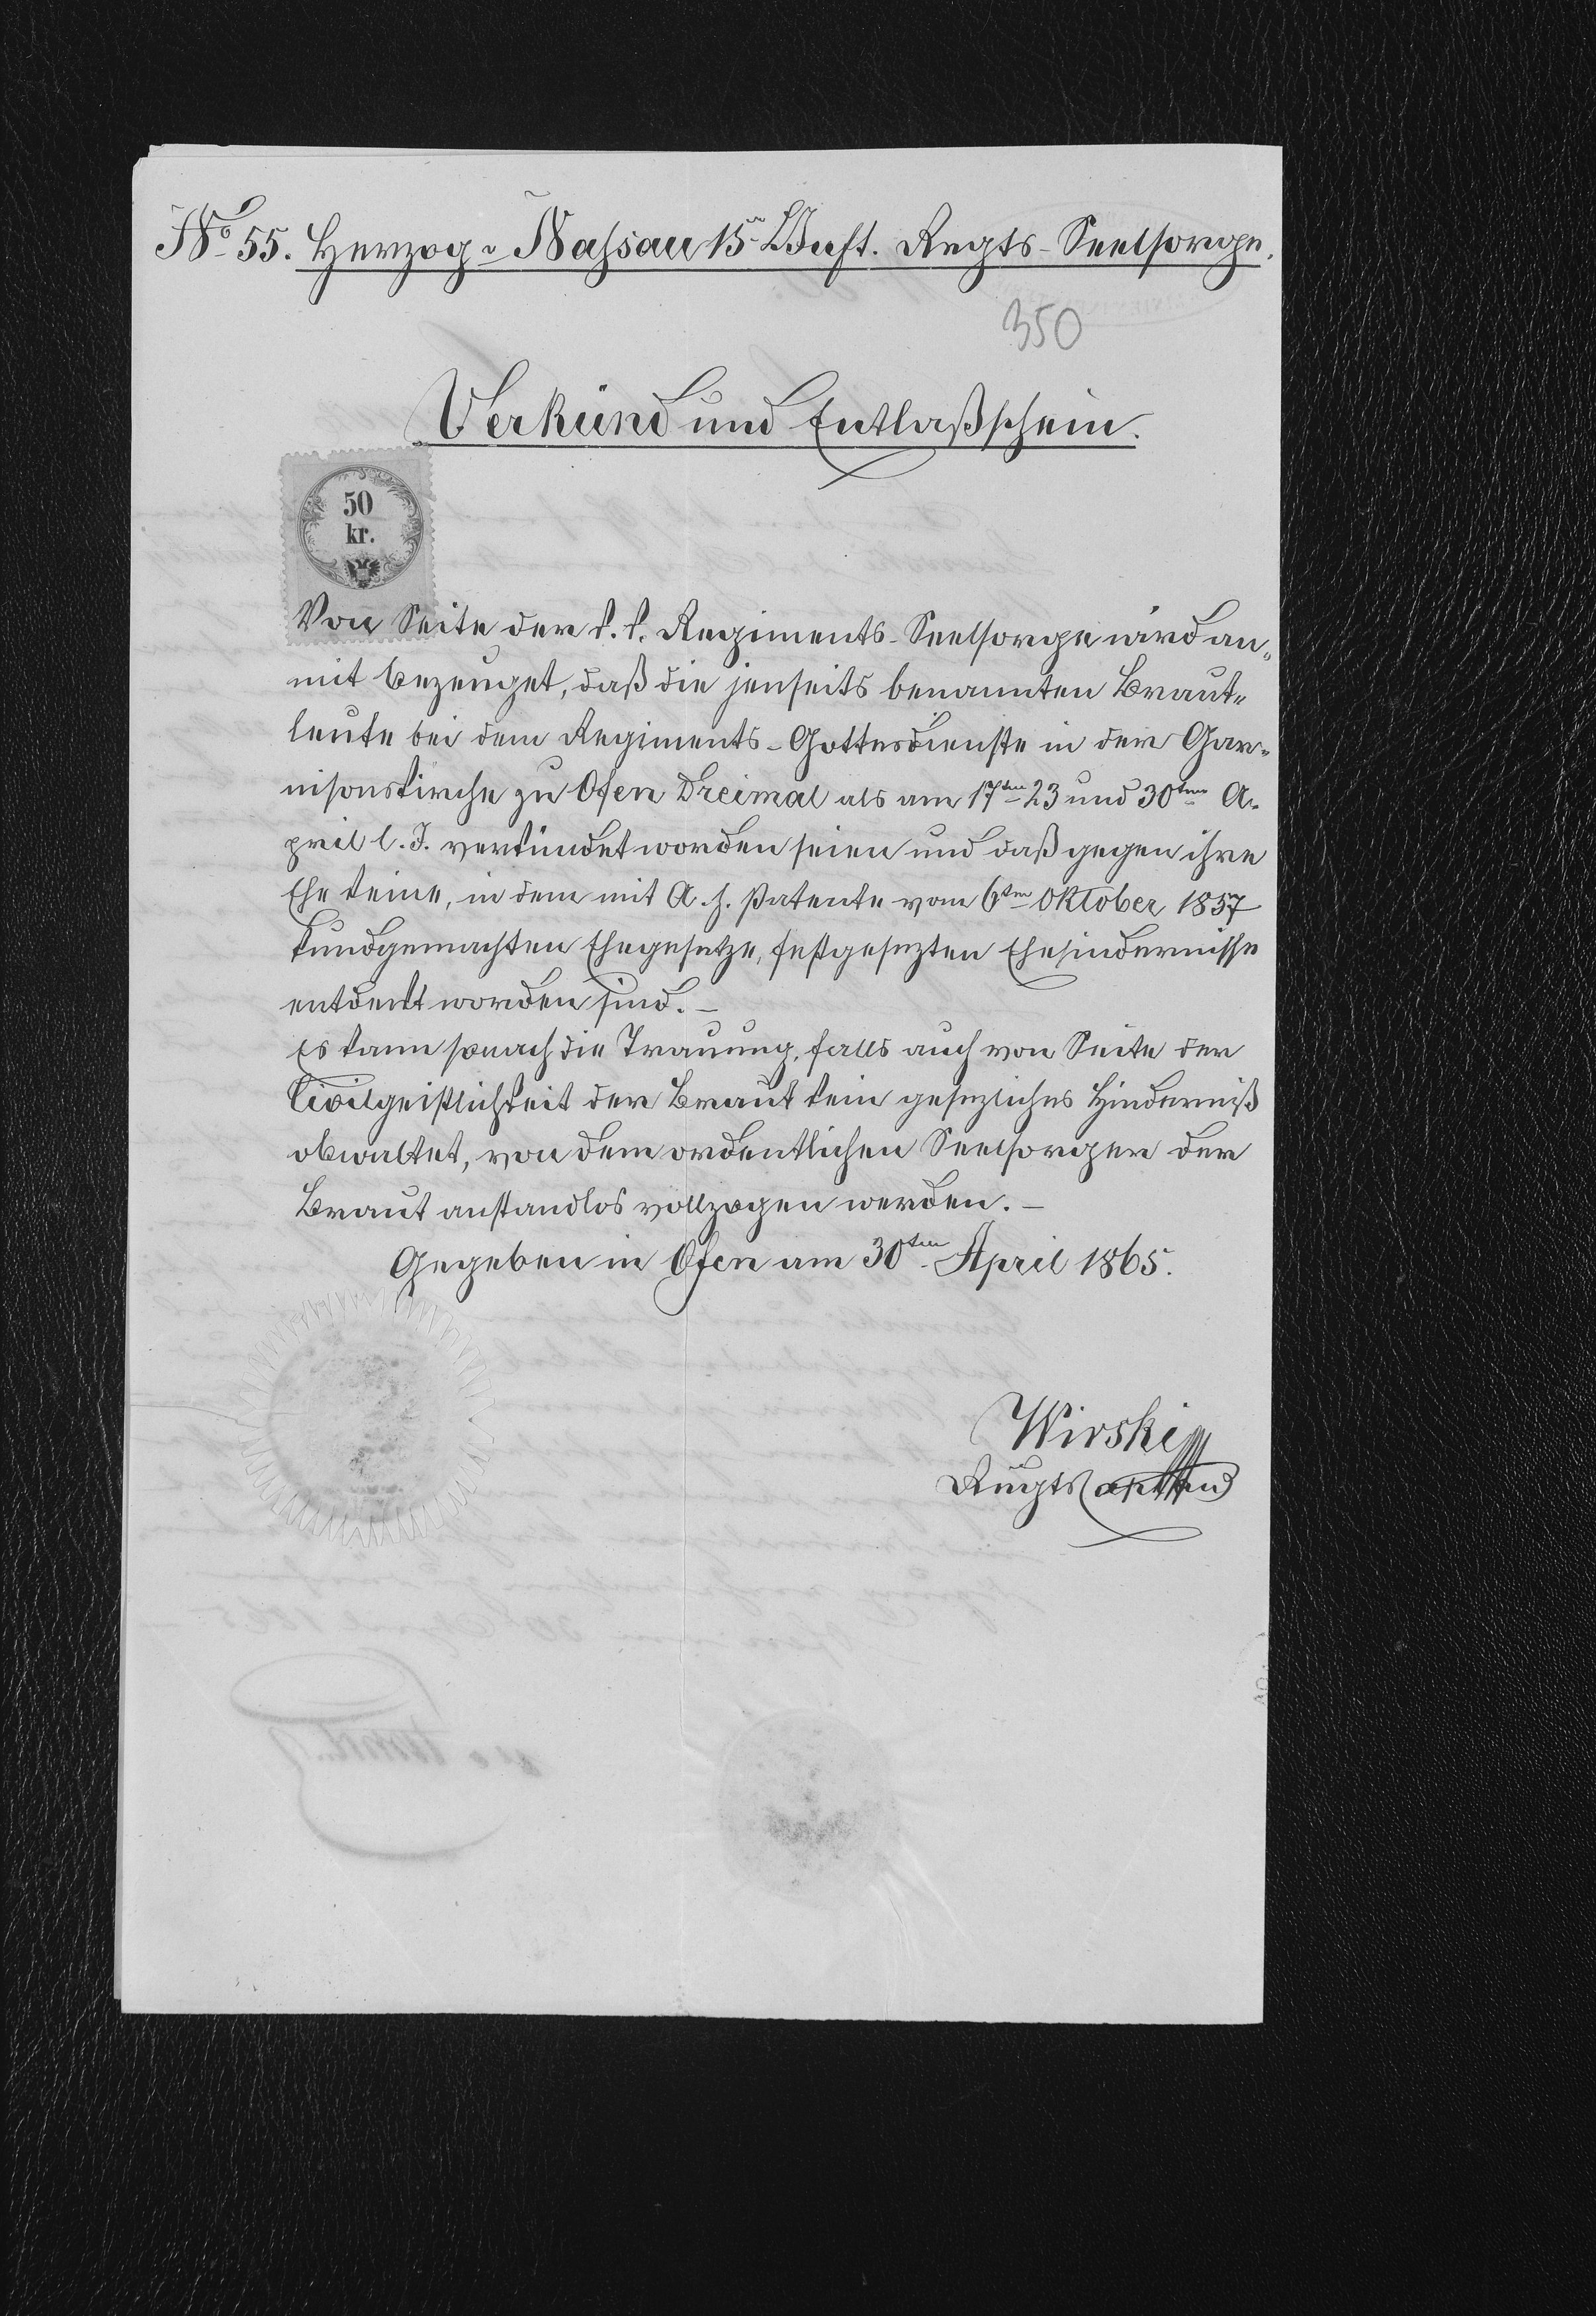 No 55. Herzog v Nassau 15 Inft. Regts-Seelsorge.
350
Verkünd und Entlaßschein.
50
kr.
Von Seite der k. k. Regiments-Seelsorge wird an„
mit bezeuget, daß die jenseits benannten Braut„
leute bei dem Regiments-Gottesdienste in der Gar„
nisonskirche zu Ofen Dreimal als am 17ten 23 und 30ten A„
pril l. J. verkündet worden seien und daß gegen ihre
Ehe keine, in dem mit A. h. Patente vom 6ten Oktober 1857
kundgemachten Ehegesetze, festgesezten Ehehindernisse
entdeckt worden sind. –
Es kann sonach die Trauung, falls auch von Seite der
Civilgeistlichkeit der Braut kein gesezliches Hinderniß
obwaltet, von dem ordentlichen Seelsorger der
Braut anstandlos vollzogen werden. –
Gegeben in Ofen am 30ten April 1865.
Wirski
Regts